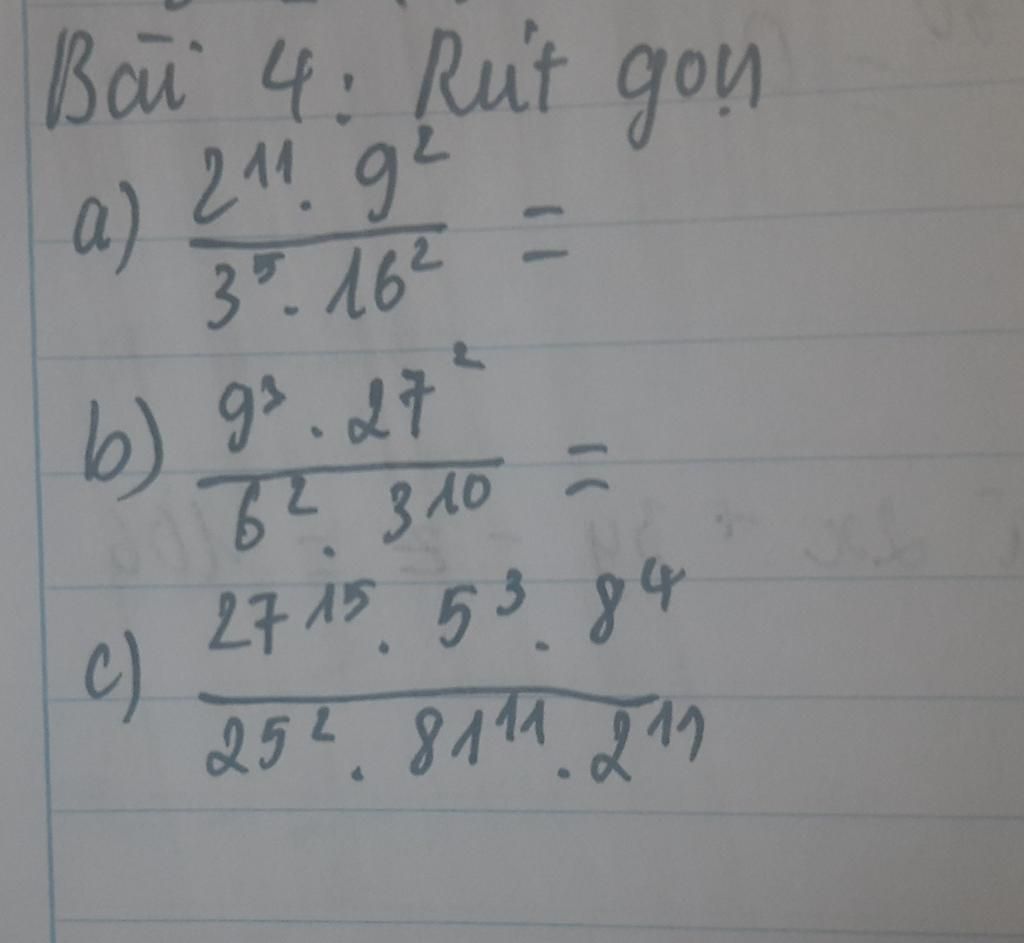 Bài 4: Rút gọn
a) \frac{2^{11} . 9^2}{3^5 . 16^2} =
b) \frac{9^3 . 27^2}{6^2 . 3^{10}} =
c) \frac{27^{15} . 5^3 . 8^4}{25^2 . 81^{11} . 2^{11}}